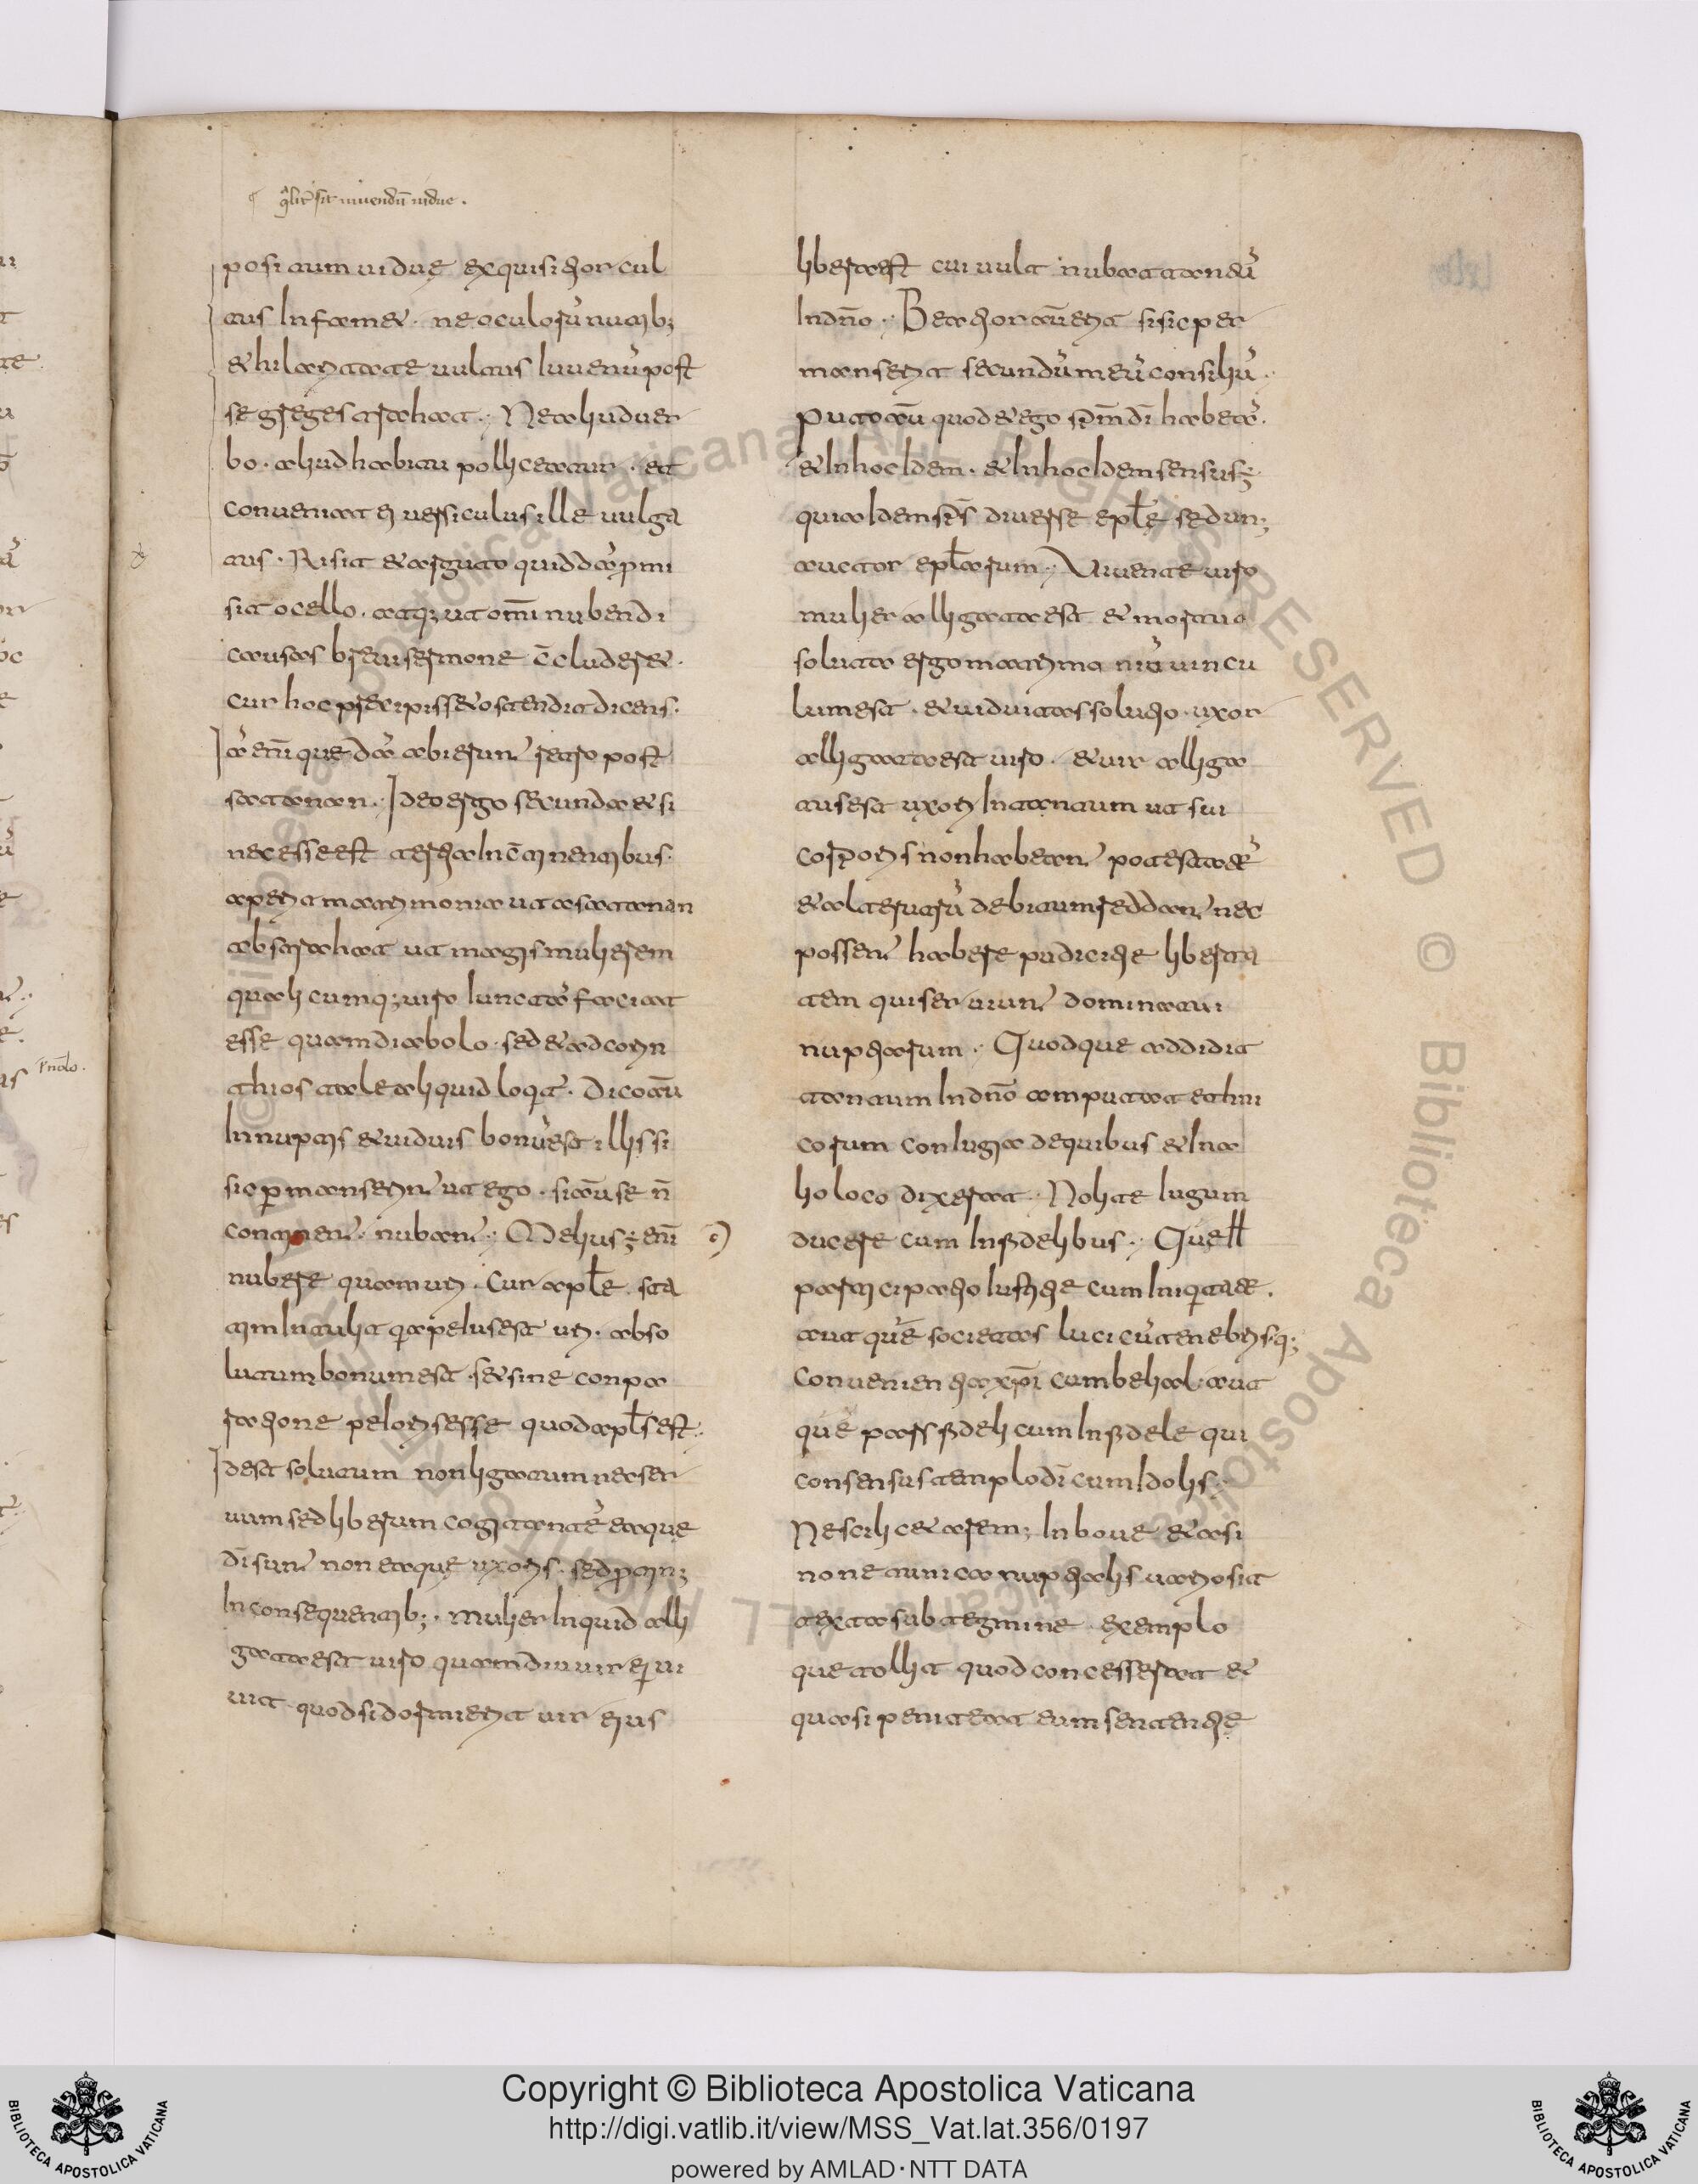 q̃lit̃ sit uiuendũ uidue.
positum uiduę exquisitior cul
tus Infamet. ne oculorũ nutib;
& hilaritate uultus Iuuenũ post
se greges trahat. Ne aliud uer
bo. aliud habitu polliceatur. et
conueniat ei uersiculus ille uulga
tus. Risit & arguto quiddã ꝓmi
sit ocello. atq; ut om̃i nubendi
causas breui sermone c̄cluderet.
cur hoc preceperit ostendit dicens.
Iã eni que dã abierun̄ retro post
satanan. Ideo ergo secunda & si
necesse est tertia Inc̄tinentibus.
aperit matrimonia ut a satanan
abstrahat ut magis mulierem
qualicumq; uiro Iunctã faciat
esse quam diabolo. sed & ad corin
thios tale aliquid loq̃t̃. Dico aũ
Innuptis & uiduis bonũ est illis si
sic ꝑmanserin̄ ut ego. si aũ se n̄
continen̄. nuban̄. Melius ÷ eni
nubere quam uri. Cur apl̃e sta
tim Intulit q̃a peius est uri. abso
lutum bonum est. set sine conpa
ratione peioris esse quod apl̃s est.
Idest solutum non ligatum nec ser
uum sed liberum cogitantẽ eaque
dĩ sun̄ non eaque uxoris. sed ꝓtin;
Inconsequentib;. mulier Inquid alli
gata est uiro quamdiu uir ei ui
uit quodsi dormierit uir eius
libera est cui uult nubat tantũ
Indño. Beatior aũ erit si sic per
manserit secundũ meũ consiliũ.
Puto aũ quod & ego spm̃ dĩ habeã.
& Inhoc Idem. & Inhoc Idem sensus ÷
quia Idem sps̃ diuerse epl̃ę sed un;
auctor epl̃arum. Viuente uiro
mulier alligata est & mortuo
soluta ergo matrimat niũ uincu
lum est. & uiduitas solutio. uxor
alligata est uiro. & uir alliga
tus est uxori Intantum ut sui
corporis non habean̄ potestatẽ
& alterutrũ debitum reddan̄ nec
possen̄ habere pudicitie liberta
tem qui seruiun̄ dominatui
nuptiarum. Quodque addidit
tantum Indño amputat ethni
corum coniugia de quibus & In a
lio loco dixerat. Nolite Iugum
ducere cum Infidelibus. Que
participatio Iustitie cum Iniq̃tate.
aut quẽ societas luci cũ tenebris q;
conuenientia xpĩ cum belial. aut
quę pars fideli cum Infidele qui
consensus templo dĩ cum Idolis.
Nescilicet arem; In boue & asi
no ne tunica nuptialis uario sit
texta subtegmine. exemplo
que tollit quod concesserat &
quasi peniteat eum sententie
Copyright © Biblioteca Apostolica Vaticana
http://digi.vatlib.it/view/MSS_Vat.lat.356/0197
powered by AMLAD·NTT DATA
BIBLIOTECA APOSTOLICA VATICANA
BIBLIOTECA APOSTOLICA VATICANA